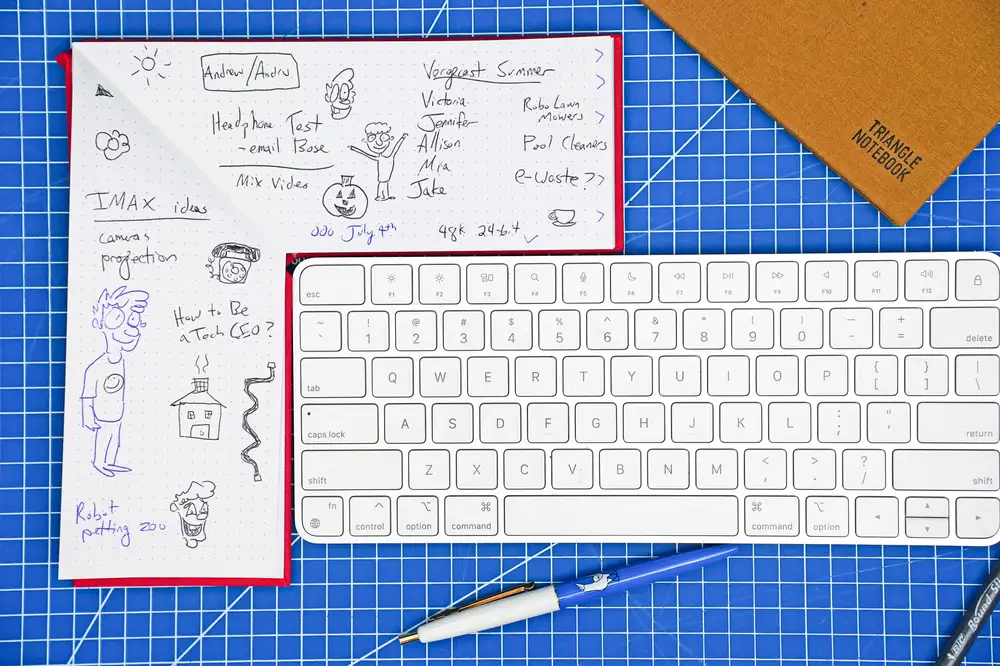 Andrew/Andru
Headphone Test
- email Bose
Mix Video
July 4th
Vergecast Summer
Victoria
Jennifer
Allison
Mia
Jake
48k 24-bit
Robo Lawn
Mowers
Pool Cleaners
e-waste?
IMAX ideas
camera
projection
How to Be
a Tech CEO?
Robot
petting zoo
TRIANGLE
NOTEBOOK
esc F1 F2 F3 F4 F5 F6 F7 F8 F9 F10 F11 F12
~ ! @ # $ % ^ & * ( ) — +
` 1 2 3 4 5 6 7 8 9 0 - = delete
tab Q W E R T Y U I O P { [ } ] | \
caps lock A S D F G H J K L : ; " ' return
shift Z X C V B N M < , > . ? / shift
fn control option command command option
BIC Round St